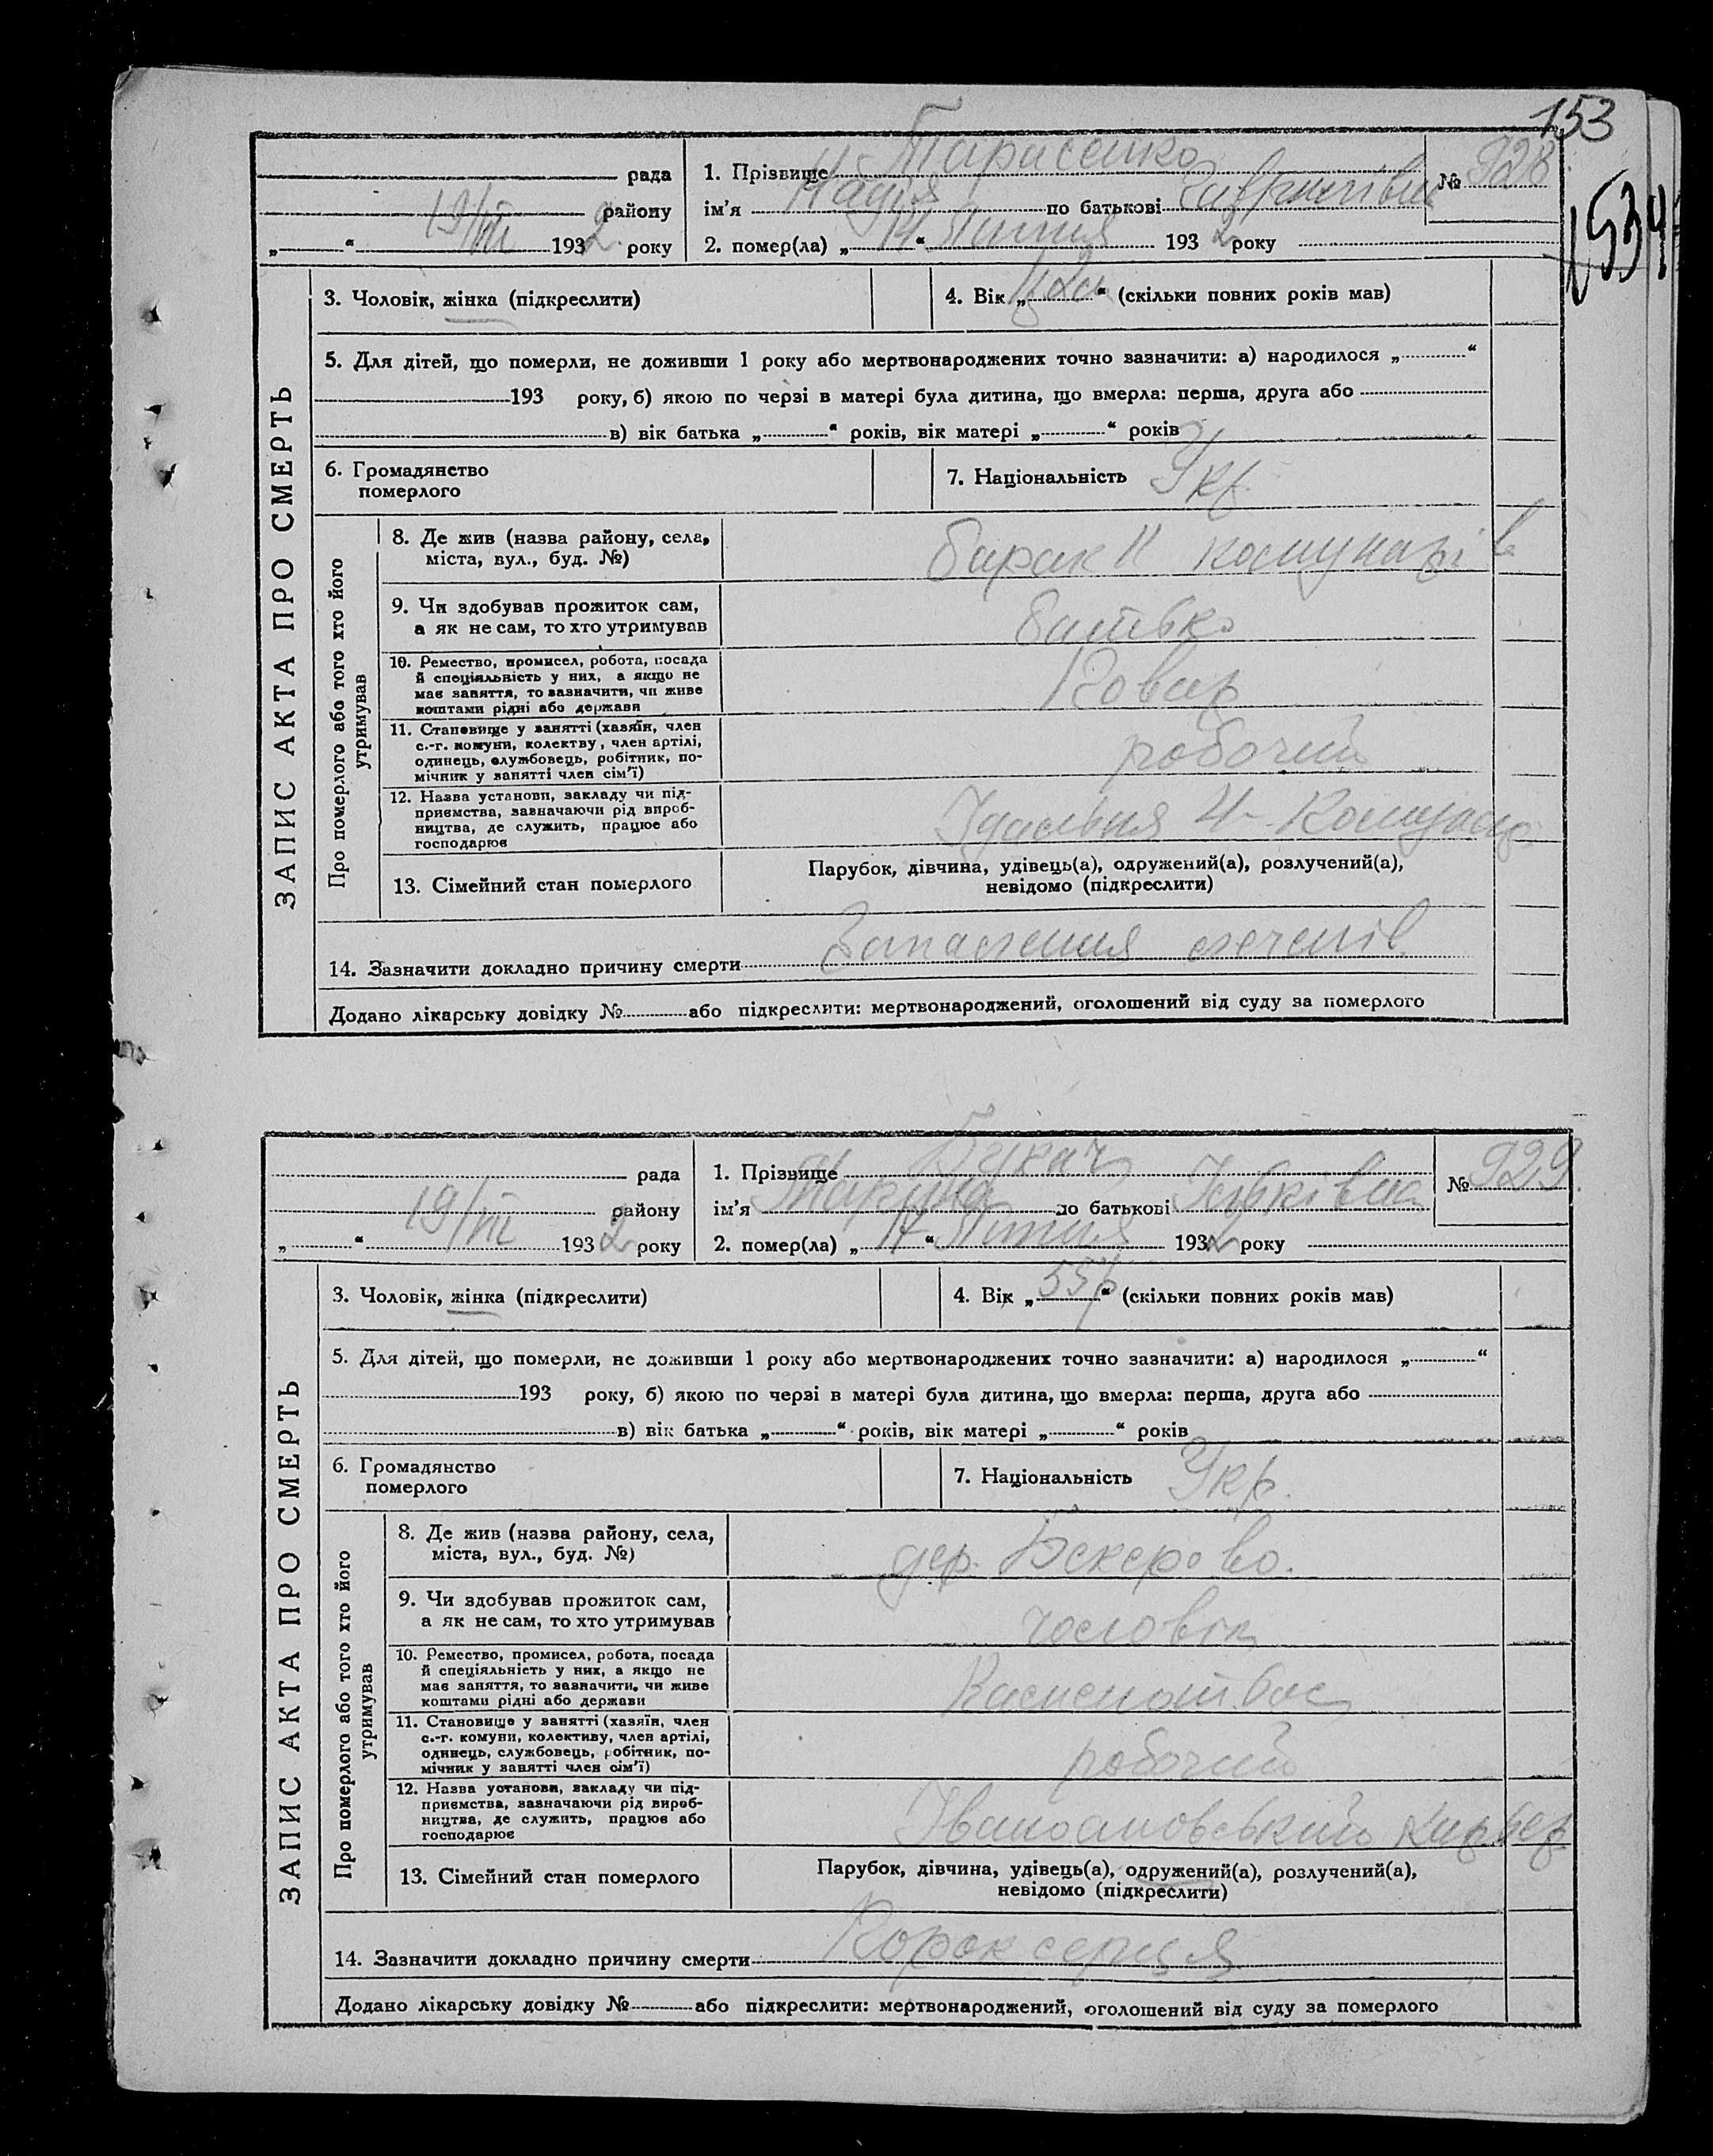 153
534
рада
1. Прізвище Тарасенко
№ 928
району
ім'я Надія по батькові
19/VII 1932 року
2. помер(ла) „14“ Липня 1932 року
ЗАПИС АКТА ПРО СМЕРТЬ
3. Чоловік, жінка (підкреслити)
4. Вік „ “ (скільки повних років мав)
5. Для дітей, що померли, не доживши 1 року або мертвонароджених точно зазначити: а) народилося „ “
193 року, б) якою по черзі в матері була дитина, що вмерла: перша, друга або
в) вік батька „ “ років, вік матері „ “ років
6. Громадянство
померлого
7. Національність Укр.
Про померлого або того хто його
утримував
8. Де жив (назва району, села,
міста, вул., буд. №)
барак 11
9. Чи здобував прожиток сам,
а як не сам, то хто утримував
батько
10. Ремество, промисел, робота, посада
й спеціяльність у них, а якщо не
має заняття, то зазначити, чи живе
коштами рідні або держави
Повар
11. Становище у занятті (хазяїн, член
с.-г. комуни, колективу, член артілі,
одинець, службовець, робітник, по-
мічник у занятті член сім'ї)
робочий
12. Назва установи, закладу чи під-
приємства, зазначаючи рід вироб-
ництва, де служить, працює або
господарює
Їдальня
13. Сімейний стан померлого
Парубок, дівчина, удівець(а), одружений(а), розлучений(а),
невідомо (підкреслити)
14. Зазначити докладно причину смерти Запалення легенів
Додано лікарську довідку № або підкреслити: мертвонароджений, оголошений від суду за померлого
рада
1. Прізвище Букач
№ 929.
району
ім'я по батькові
19/VII 1932 року
2. помер(ла) „17“ Липня 1932 року
ЗАПИС АКТА ПРО СМЕРТЬ
3. Чоловік, жінка (підкреслити)
4. Вік „55р“ (скільки повних років мав)
5. Для дітей, що померли, не доживши 1 року або мертвонароджених точно зазначити: а) народилося „ “
193 року, б) якою по черзі в матері була дитина, що вмерла: перша, друга або
в) вік батька „ “ років, вік матері „ “ років
6. Громадянство
померлого
7. Національність Укр.
Про померлого або того хто його
утримував
8. Де жив (назва району, села,
міста, вул., буд. №)
дер. Бекерово.
9. Чи здобував прожиток сам,
а як не сам, то хто утримував
чоловік
10. Ремество, промисел, робота, посада
й спеціяльність у них, а якщо не
має заняття, то зазначити, чи живе
коштами рідні або держави
11. Становище у занятті (хазяїн, член
с.-г. комуни, колективу, член артілі,
одинець, службовець, робітник, по-
мічник у занятті член сім'ї)
робочий
12. Назва установи, закладу чи під-
приємства, зазначаючи рід вироб-
ництва, де служить, працює або
господарює
карьер
13. Сімейний стан померлого
Парубок, дівчина, удівець(а), одружений(а), розлучений(а),
невідомо (підкреслити)
14. Зазначити докладно причину смерти Порок серця
Додано лікарську довідку № або підкреслити: мертвонароджений, оголошений від суду за померлого